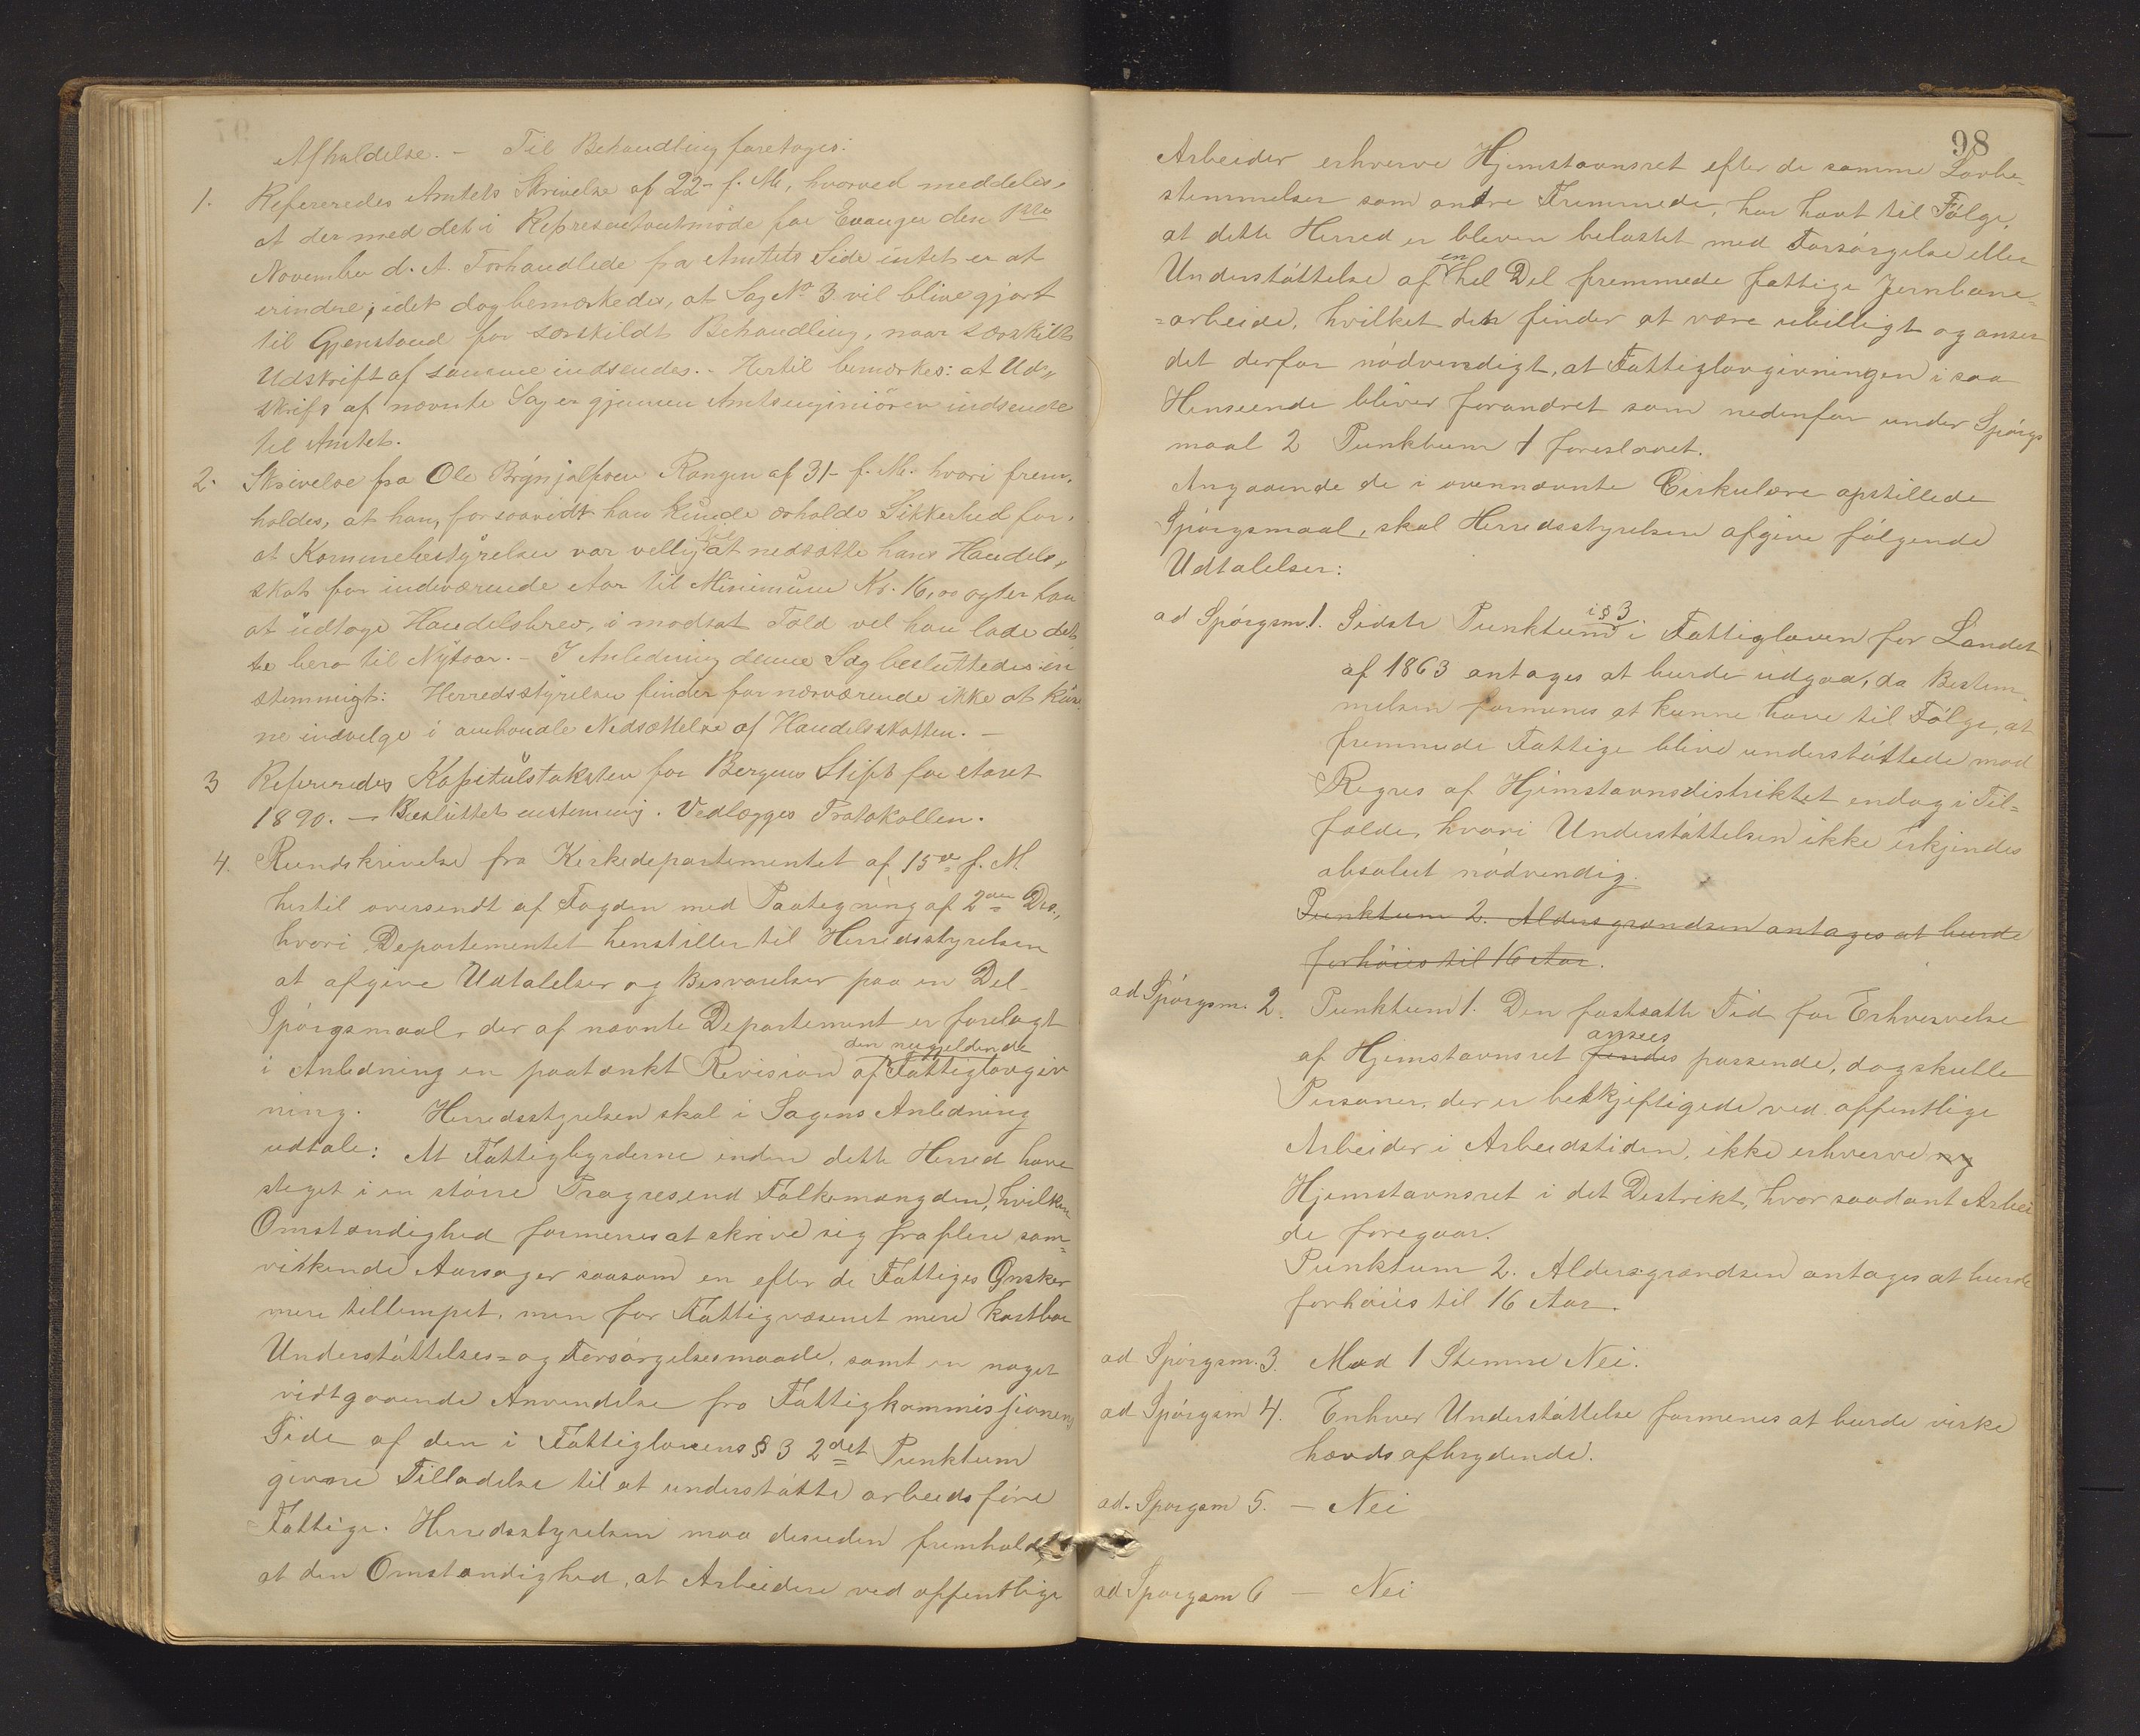 Afholdelse. - Til Behandling foretoges:
1. Refereredes Amtets Skrivelse af 22- f. M, hvorved meddeles
at der med det i Repræsentantmöde for Evanger den 1ste
November d. A. Forhandlede fra Amtets Side intet er at
erindre; idet dog bemærkedes, at Sag No 3 vil blive gjort
til Gjenstand for særskildt Behandling, naar særskilt
Udskrift af samme indsendes. - Hertil bemærkes: at Ud„
skrift af nævnte Sag er gjennem Amtsingeniören indsendt
til Amtet.
2. Skrivelse fra Ole Brynjulfsen Rongen af 31- f. M. hvori frem„
holdes, at han, forsaavidt han kunde erholde Sikkerhed for,
at Kommunebestyrelsen var villig til at nedsætte hans Handels„
skat for indeværende Aar til Minimum Kr. 16,00 agter han
at udtage Handelsbrev, i modsat Fald vil han lade det„
te bero til Nytaar. - I Anledning denne Sag besluttedes en
stemmigt: Herredsstyrelsen finder for nærværende ikke at kun
ne indvelge i omhandle Nedsættelse af Handelsskatten. -
3 Refereredes Kapitulstaksten for Bergens Stift for Aaret
1890. - Besluttet enstemmig. Vedlægges Protokollen.
4. Rundskrivelse fra Kirkedepartementet af 15de f. M.
hertil oversendt af Fogden med Paategning af 2den Ds.,
hvori Departementet henstiller til Herredsstyrelsen
at afgive Udtalelser og Besvarelser paa en Del
Spörgsmaal, der af nævnte Departement er forelagt
den nugjeldende
i Anledning en paatænkt Revision af Fattiglovgiv
ning. Herredsstyrelsen skal i Sagens Anledning
udtale: At Fattigbyrderne inden dette Herred have
steget i en större Progres end Folkemængden, hvilken
Omstændighed formenes at skrive sig fra flere sam=
virkende Aarsager saasom en efter de Fattiges Ønsker
mere tillempet, men for Fattigvæsenet mere kostbar
Understøttelses= og Forsørgelsesmaade, samt en noget
vidtgaaende Anvendelse fra Fattigkommissjonens
Side af den i Fattiglovens § 3 2det Punktum
givne Tilladelse til at understøtte arbeidsføre
Fattige. Herredsstyrelsen maa desuden fremholde,
at den Omstændighed, at Arbeidere ved offentlige
98
Arbeider erhverve Hjemstavnsret efter de samme Lovbe=
stemmelser som andre Fremmede, har havt til Følge,
at dette Herred er bleven belastet med Forsørgelse eller
Understøttelse af en hel Del fremmede fattige Jernbane=
=arbeide, hvilket det finder at være ubilligt og anser
det derfor nødvendigt, at Fattiglovgivningen i saa
Henseende bliver forandret som nedenfor under Spørgs
maal 2 Punktum 1 foreslaaet.
Angaaende de i ovennævnte Cirkulære opstillede
Spørgsmaal, skal Herredsstyrelsen afgive følgende
Udtalelser:
ad Spørgsm. 1. Sidste Punktum i § 3 i Fattigloven for Landet
af 1863 antages at burde udgaa, da Bestem
melsen formenes at kunne have til Følge, at
fremmede Fattige blive understøttede mod
Regres af Hjemstavnsdistriktet endog i Til=
fælde, hvori Understøttelsen ikke erkjendes
absolut nødvendig.
Punktum 2. Aldersgrændsen antages at burde
forhøies til 16 Aar.
ad Spørgsm. 2. Punktum 1. Den fastsatte Tid for Erhvervelse
ansees
af Hjemstavnsret findes passende, dog skulle
Personer, der er beskjeftigede ved offentlige
Arbeider i Arbeidstiden, ikke erhverve ny
Hjemstavnsret i det Distrikt, hvor saadant Arbei
de foregaar.
Punktum 2. Aldersgrændsen antages at burde
forhøies til 16 Aar.
ad Spørgsm. 3. Mod 1 Stemme Nei.
ad Spørgsm 4. Enhver Understøttelse formenes at burde virke
hævdsafbrydende.
ad. Spørgsm 5. - Nei
ad Spørgsm 6 - Nei